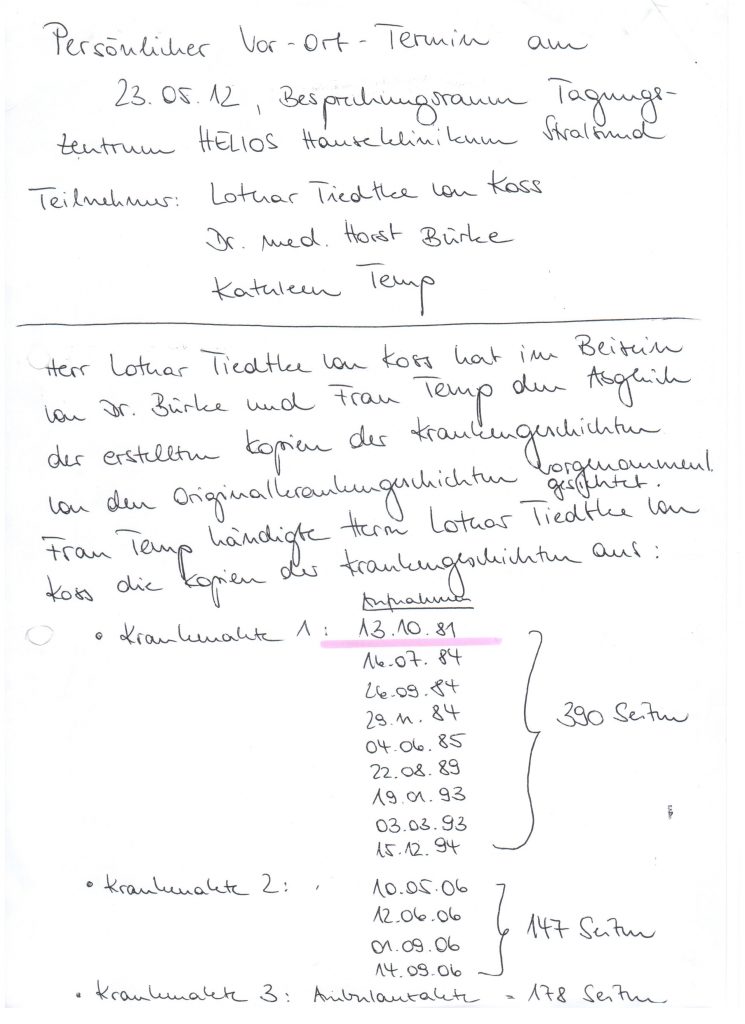 Persönlicher Vor-Ort-Termin am
23.05.12, Besprechungsraum Tagungs-
zentrum HELIOS Hanseklinikum Stralsund
Teilnehmer: Lothar Tiedtke von Koss
Dr. med. Horst Bürke
Kathleen Temp
Herr Lothar Tiedtke von Koss hat im Beisein
von Dr. Bürke und Frau Temp den Abgleich
der erstellten Kopien der Krankengeschichten
von den Originalkrankengeschichten vorgenommen/
gesichtet.
Frau Temp händigte Herrn Lothar Tiedtke von
Koss die Kopien der Krankengeschichten aus:
Aufnahmen
• Krankenakte 1: 13.10.81
16.07.84
26.09.84
29.11.84
04.06.85
22.08.89
19.01.93
03.03.93
15.12.94
390 Seiten
• Krankenakte 2: 10.05.06
12.06.06
01.09.06
14.09.06
147 Seiten
• Krankenakte 3: Ambulantakte = 178 Seiten